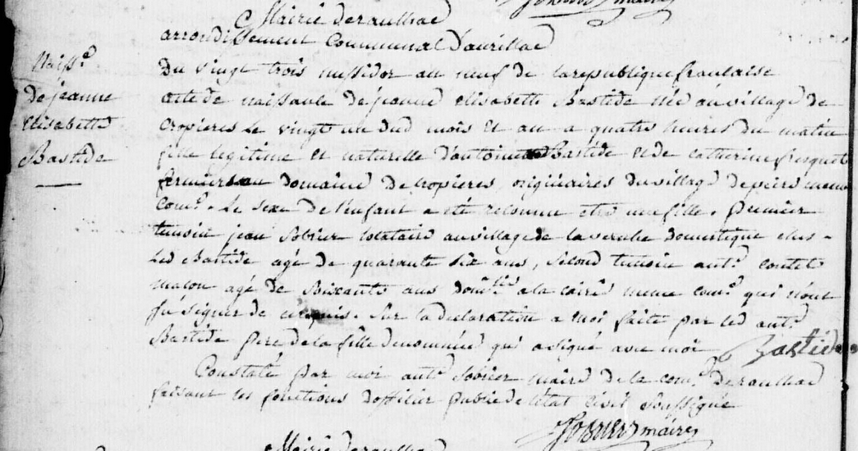 Mairie de raulhac
arrondissement Communal d'aurillac
Du vingt trois messidor an neuf de la republique francaise
Naiss.ce
de jeanne
elisabette
Bastide
acte de naissance de jeanne elisabette Bastide née au village de
Cropieres le vingt un dud mois et an a quatre heures du matin
fille legitime et naturelle d'antoine Bastide et de catherine
fermiers au domaine de cropieres, originaires du village de
Com.e. Le sexe de l'enfant a été reconnu etre une fille. premier
temoin jean Sobrier locataire au village de la domestique ches
Led Bastide agé de quarante six ans, second temoin ant.e
macon agé de soixante ans a la meme com.e qui n'ont
su signer de ce requis. Sur la declaration a moi faite par led ant.e
Bastide pere de la fille denommée qui a signé avec moi Bastide
Constaté par moi ant.e Sobrier maire de la com.e de raulhac
faisant les fonctions d'officier public de l'etat civil soussigné
Sobrier maire
Mairie de raulhac